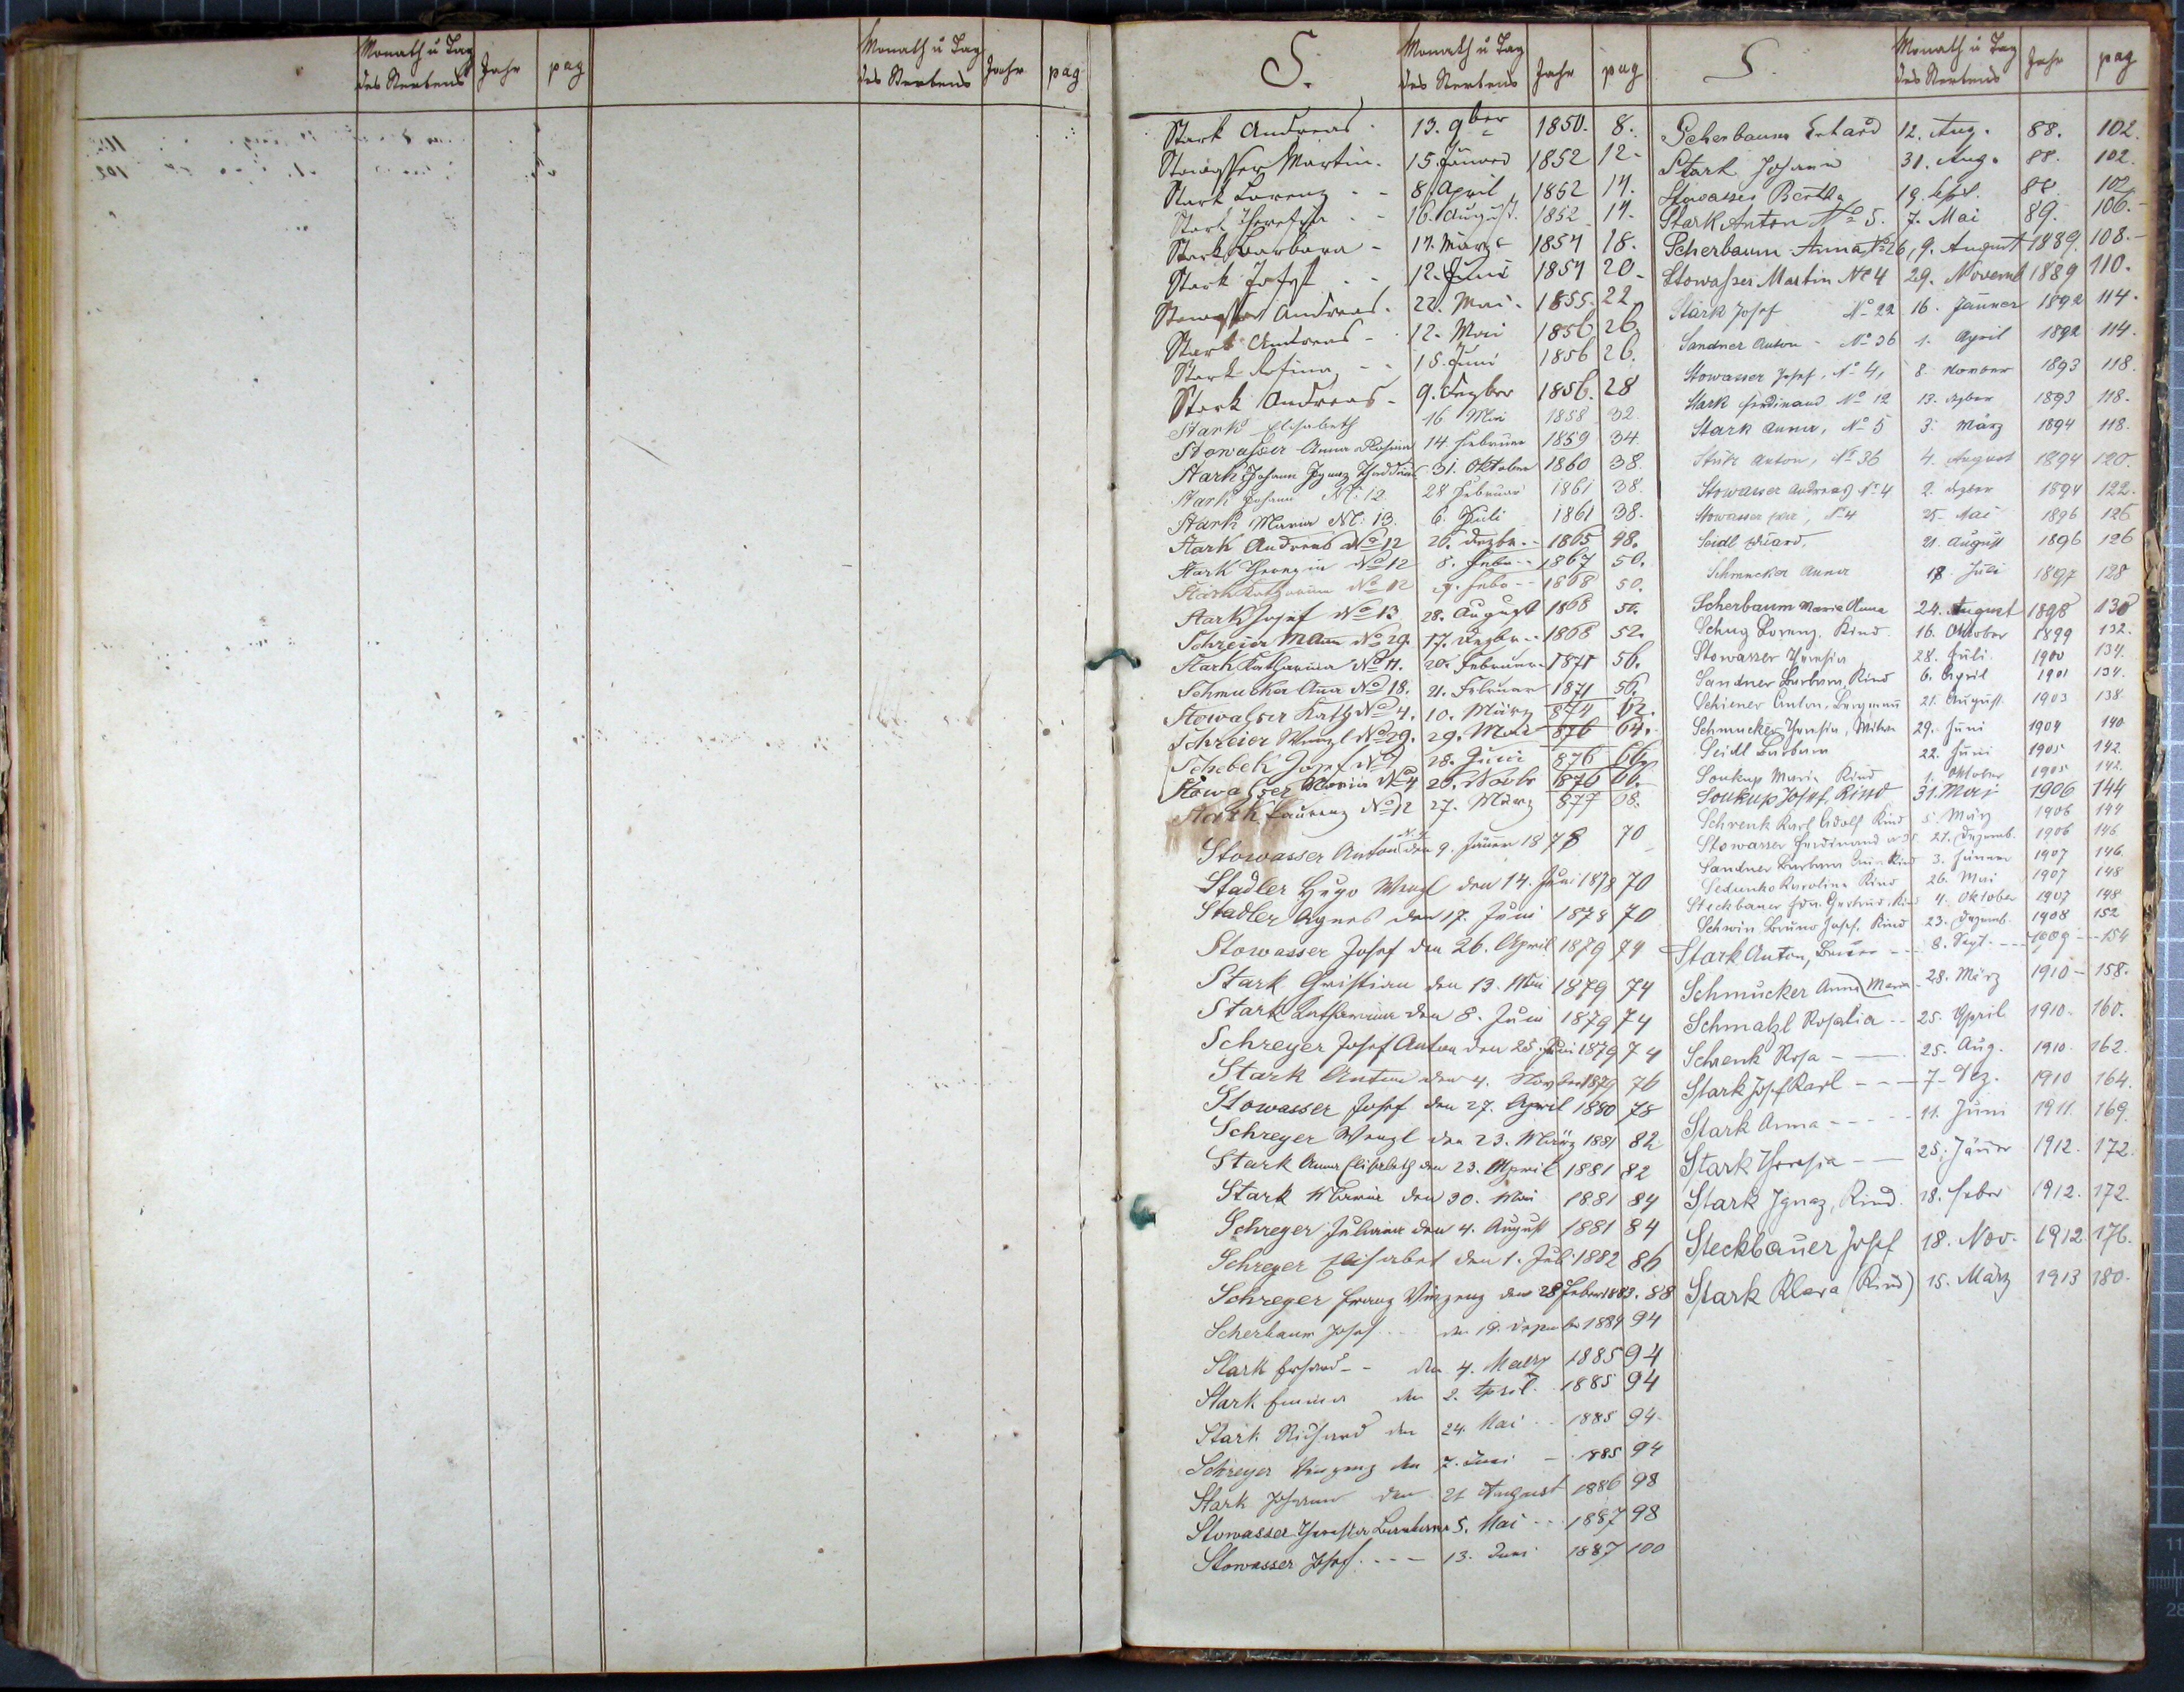 Monath u Tag des Sterbens Jahr pag Monath u Tag des Sterbens Jahr pag
S. Monath u Tag des Sterbens Jahr pag
Stark Andreas 13. 9ber 1850. 8.
Stowasser Martin. 15. Jänner 1852 12
Stark Lorenz 8. April 1852 14.
Stark Theresia 16. August. 1852 14.
Stark Barbara 17. März 1854 18.
Stark Josef 12. Juni 1854 20
Stowasser Andreas. 22. Mai. 1855. 22.
Stark Andreas 12. Mai 1856 26.
Stark Rosina 15. Juni 1856 26.
Stark Andreas 9. Dezber 1856. 28
Stark Elisabeth 16 Mai 1858 32
Stowasser Anna Rosina 14 Februar 1859 34.
Stark Johann Ignaz Thaddäus 31. Oktober 1860 38.
Stark Johann No: 12 28 Februar 1861 38.
Stark Maria No: 13. 6. Juli 1861 38.
Stark Andreas No 12 26. Dezbr. 1865 48.
Stark No 12 8. Febr 1867 50.
Stark Katharina No 12 9. Febr 1868 50.
Stark Josef No 13 28. August 1868 50.
Schreier No 29. 17. Dezbr. 1868 52.
Stark Katharina No 11. 20. Februar 1871 56.
Schmucker Anna No 18. 21. Februar 1871 56.
Stowasser Kath No 4. 10. März 874 62.
Schreier Wenzl No 29. 29. Mai 876 64.
Schebek Josef No 28. Juni 876 66.
Stowasser Maria No 4 20. Novbr 1876 66.
Stark Laurenz No 12 27. März 877 68.
Stowasser Anton den 9. Jänner 1878 70
Stadler Hugo Wenzl den 14. Juni 1878 70
Stadler Agnes den 17. Juni 1878 70
Stowasser Josef den 26. April 1879 74
Stark Christian den 13. Mai 1879 74
Stark Katharina den 8. Juni 1879 74
Schreyer Josef Anton den 25. Juni 1879 74
Stark Anton den 4. November 1879 76
Stowasser Josef den 27. April 1880 78
Schreyer Wenzl den 23. März 1881 82
Stark Anna Elisabeth den 23. April 1881 82
Stark Maria den 30. Mai 1881 84
Schreyer Juliana den 4. August 1881 84
Schreyer Elisabet den 1. Juli 1882 86
Schreyer Franz Vinzenz den 28 Feber 1883. 88
Scherbaum Josef den 19. Dezember 1884 94
Stark Erhard den 4. Maerz 1885 94
Stark Emma den 2. April 1885 94
Stark Richard den 24. Mai 1885 94
Schreyer Vinzenz den 7. Juni 1885 94
Stark Johann den 21 August 1886 98
Stowasser Theresia Barbara 5. Mai 1887 98
Stowasser Josef 13. Juni 1887 100
S. Monath u Tag des Sterbens Jahr pag
Scherbaum Erhard 12. Aug. 88. 102.
Stark Johann 31. Aug. 88. 102.
Stowasser Bertha 19. Sept. 88. 102
Stark Anton No 5. 7. Mai 89. 106.
Scherbaum Anna No 26, 9. August 1889. 108.
Stowasser Martin No 4 29. Novemb 1889 110.
Stark Josef No 22 16. Jänner 1892 114.
Sandner Anton No 36 1. April 1892 114.
Stowasser Josef, No 4, 8. November 1893 118.
Stark Ferdinand No 12 13. Dezber 1893 118.
Stark Anna, No 5 3. März 1894 118.
Anton, No 36 4. August 1894 120.
Stowasser Andreas No 4 2. Dzber 1894 122.
Stowasser No 4 25. Mai 1896 126
Seidl Eduard, 21. August 1896 126
Schmucker Anna 18 Juli 1897 128
Scherbaum Maria Anna 24. August 1898 130
Schug Lorenz, Kind 16. Oktober 1899 132.
Stowasser Theresia 28. Juli 1900 134.
Sandner Barbara, Kind 6. April 1901 134.
Schiener Anton, Bergmann 21. August 1903 138.
Schmucker Theresia, Witwe 29. Juni 1904 140
Seidl Barbara 22. Juni 1905 142.
Soukup Maria Kind 1. Oktober 1905 142.
Soukup Josef, Kind 31. Mai 1906 144
Schrenk Karl Adolf Kind 5. März 1906 144
Stowasser Ferdinand 27. Dezemb. 1906 146
Sandner Barbara Kind 3. Jänner 1907 146.
Karolina Kind 26. Mai 1907 148
Steckbauer Gertrud, Kind 4. Oktober 1907 148
Schwin Bruno Josef, Kind 23. Dezemb. 1908 152
Stark Anton, Bauer 8. Sept. 1909 154
Schmucker Anna Maria 28. März 1910 158.
Schmalzl Rosalia 25. April 1910. 160.
Schrenk Rosa 25. Aug. 1910. 162.
Stark Josef Karl 7. Dez. 1910 164.
Stark Anna 11. Juni 1911. 169.
Stark Theresia 25. Jänner 1912. 172.
Stark Ignaz, Kind. 18. Feber 1912. 172.
Steckbauer Josef 18. Nov. 1912. 176.
Stark Klara (Kind) 15. März 1913 180.